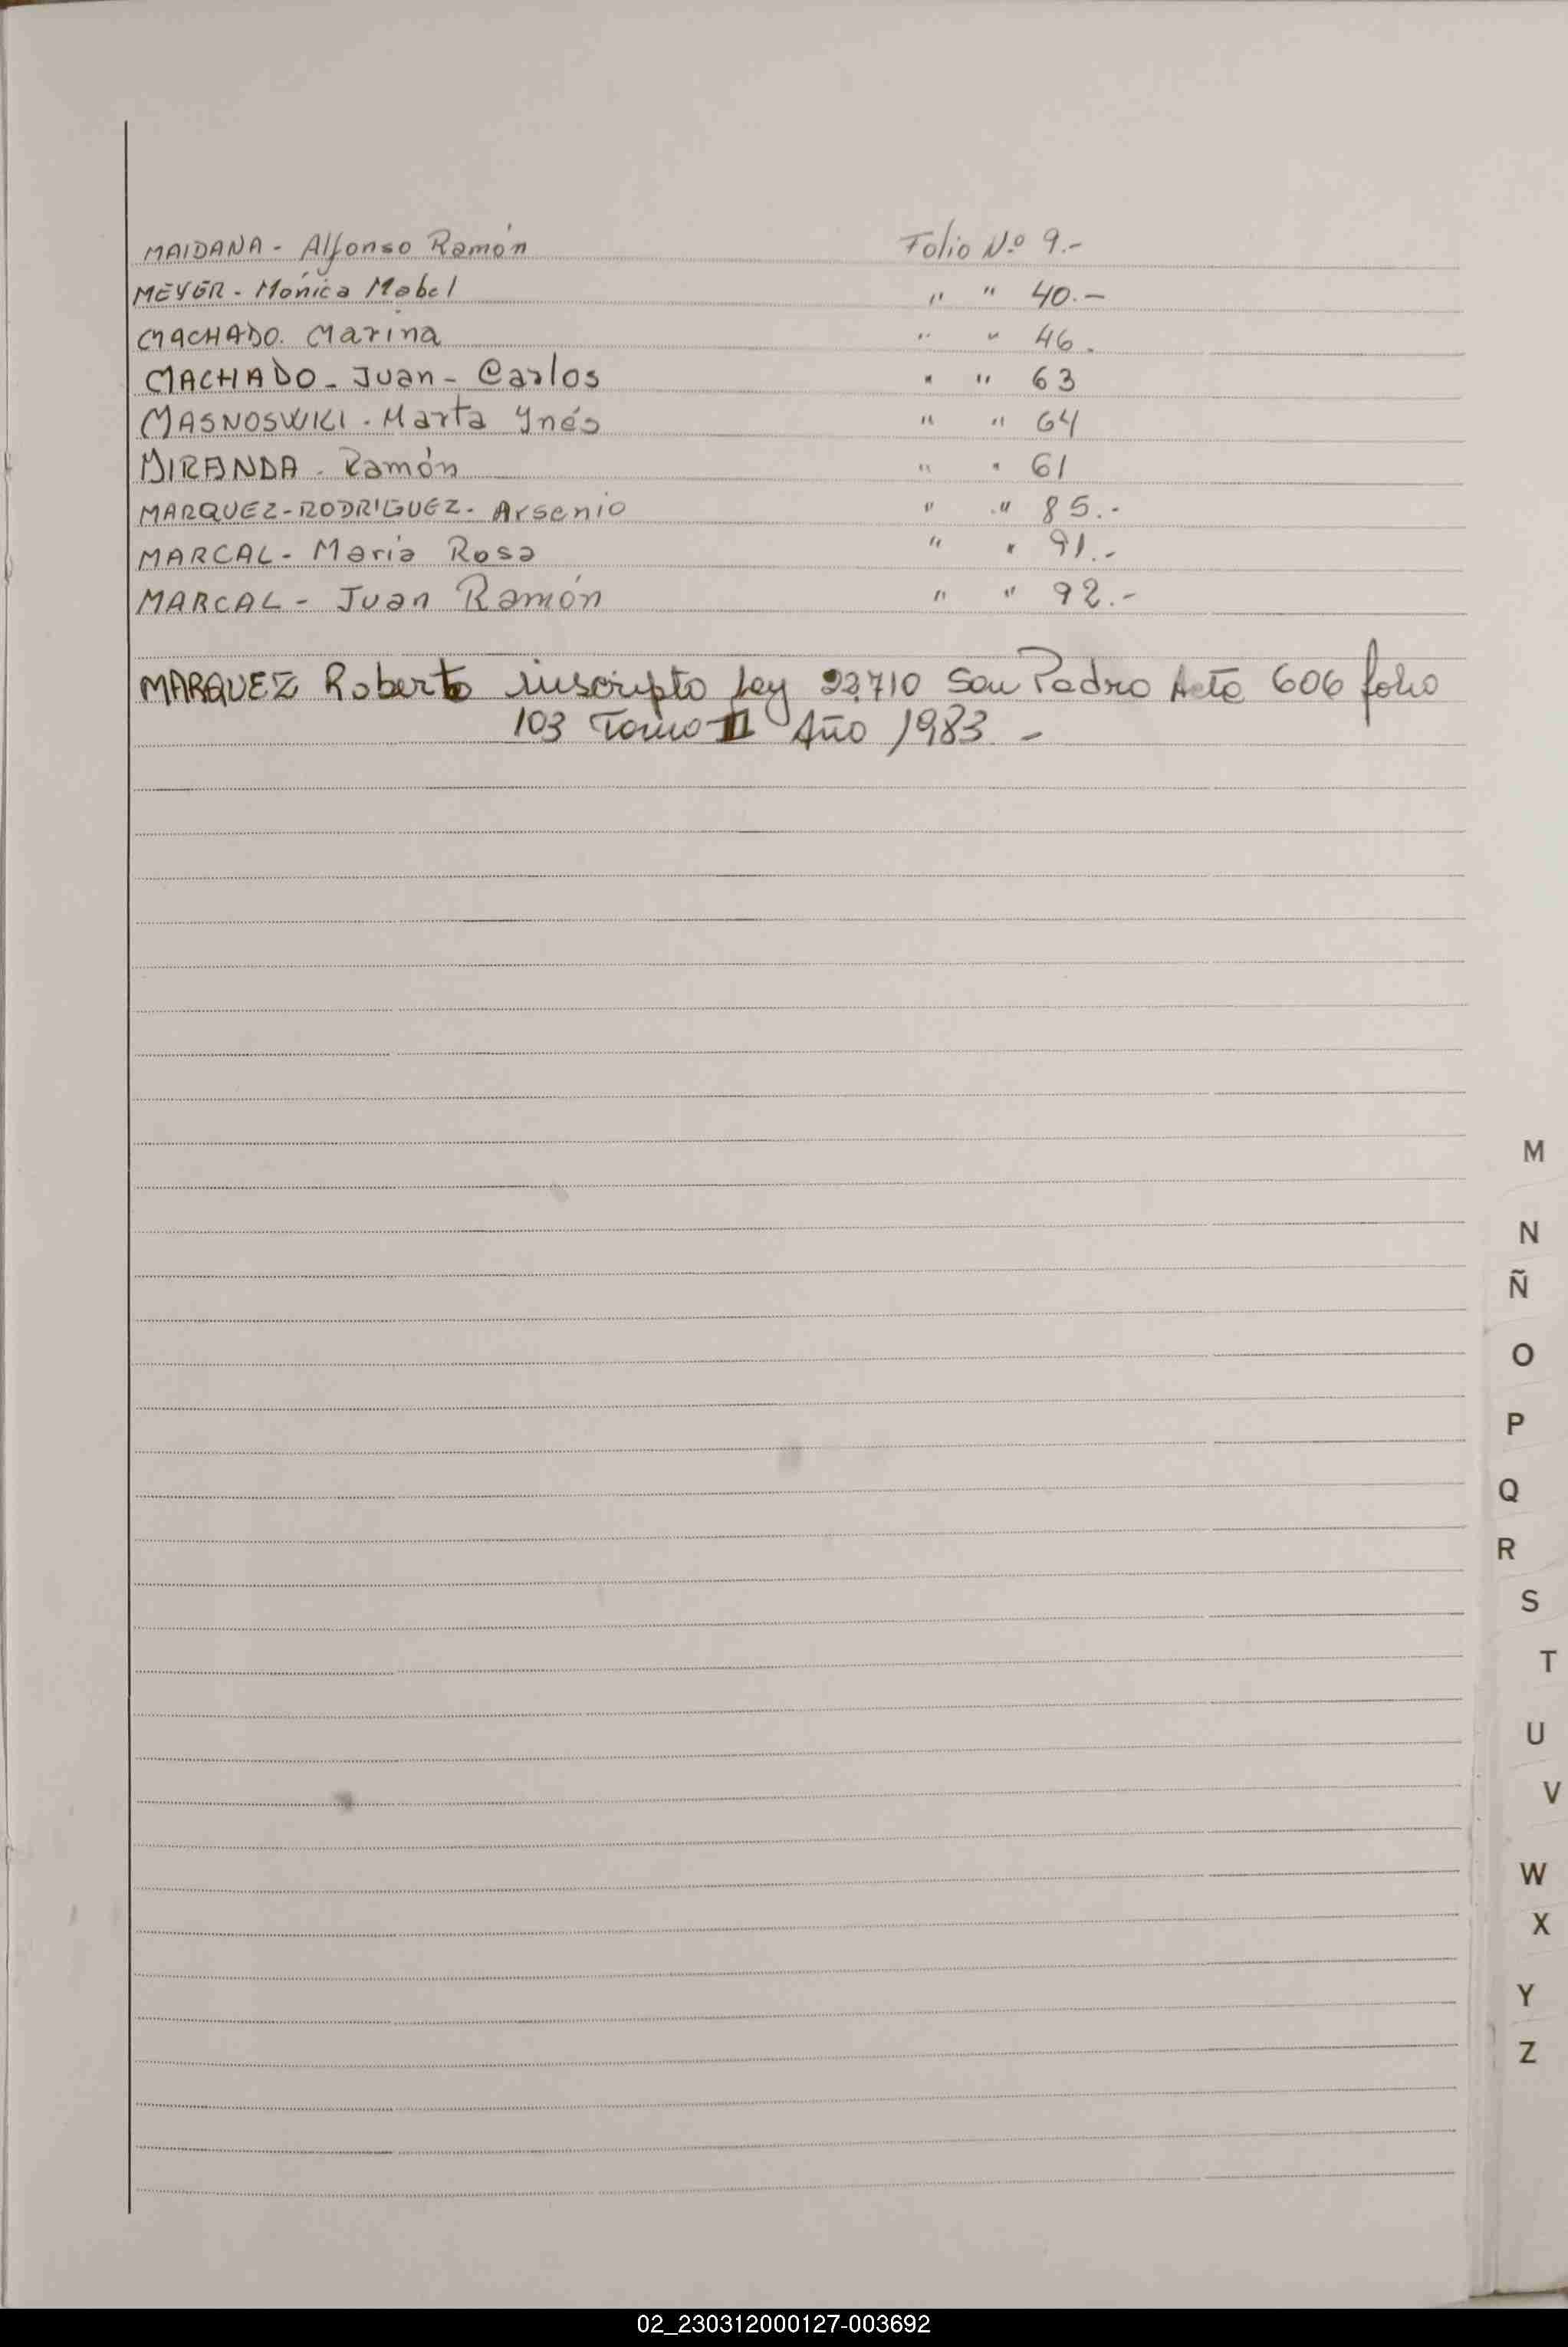 MAIDANA - Alfonso Ramón Folio Nº 9.-
MEYER - Mónica Mabel " " 40.-
MACHADO. Marina " " 46.
MACHADO - Juan - Carlos " " 63
MASNOSWKI - Marta Ynés " " 64
MIRANDA - Ramón " " 61
MARQUEZ-RODRIGUEZ - Arsenio " " 85.-
MARCAL - Maria Rosa " " 91.-
MARCAL - Juan Ramón " " 92.-
MARQUEZ Roberto inscripto Ley 22710 San Pedro Acta 606 folio
103 Tomo II Año 1983. -
M
N
Ñ
O
P
Q
R
S
T
U
V
W
X
Y
Z
02_230312000127-003692